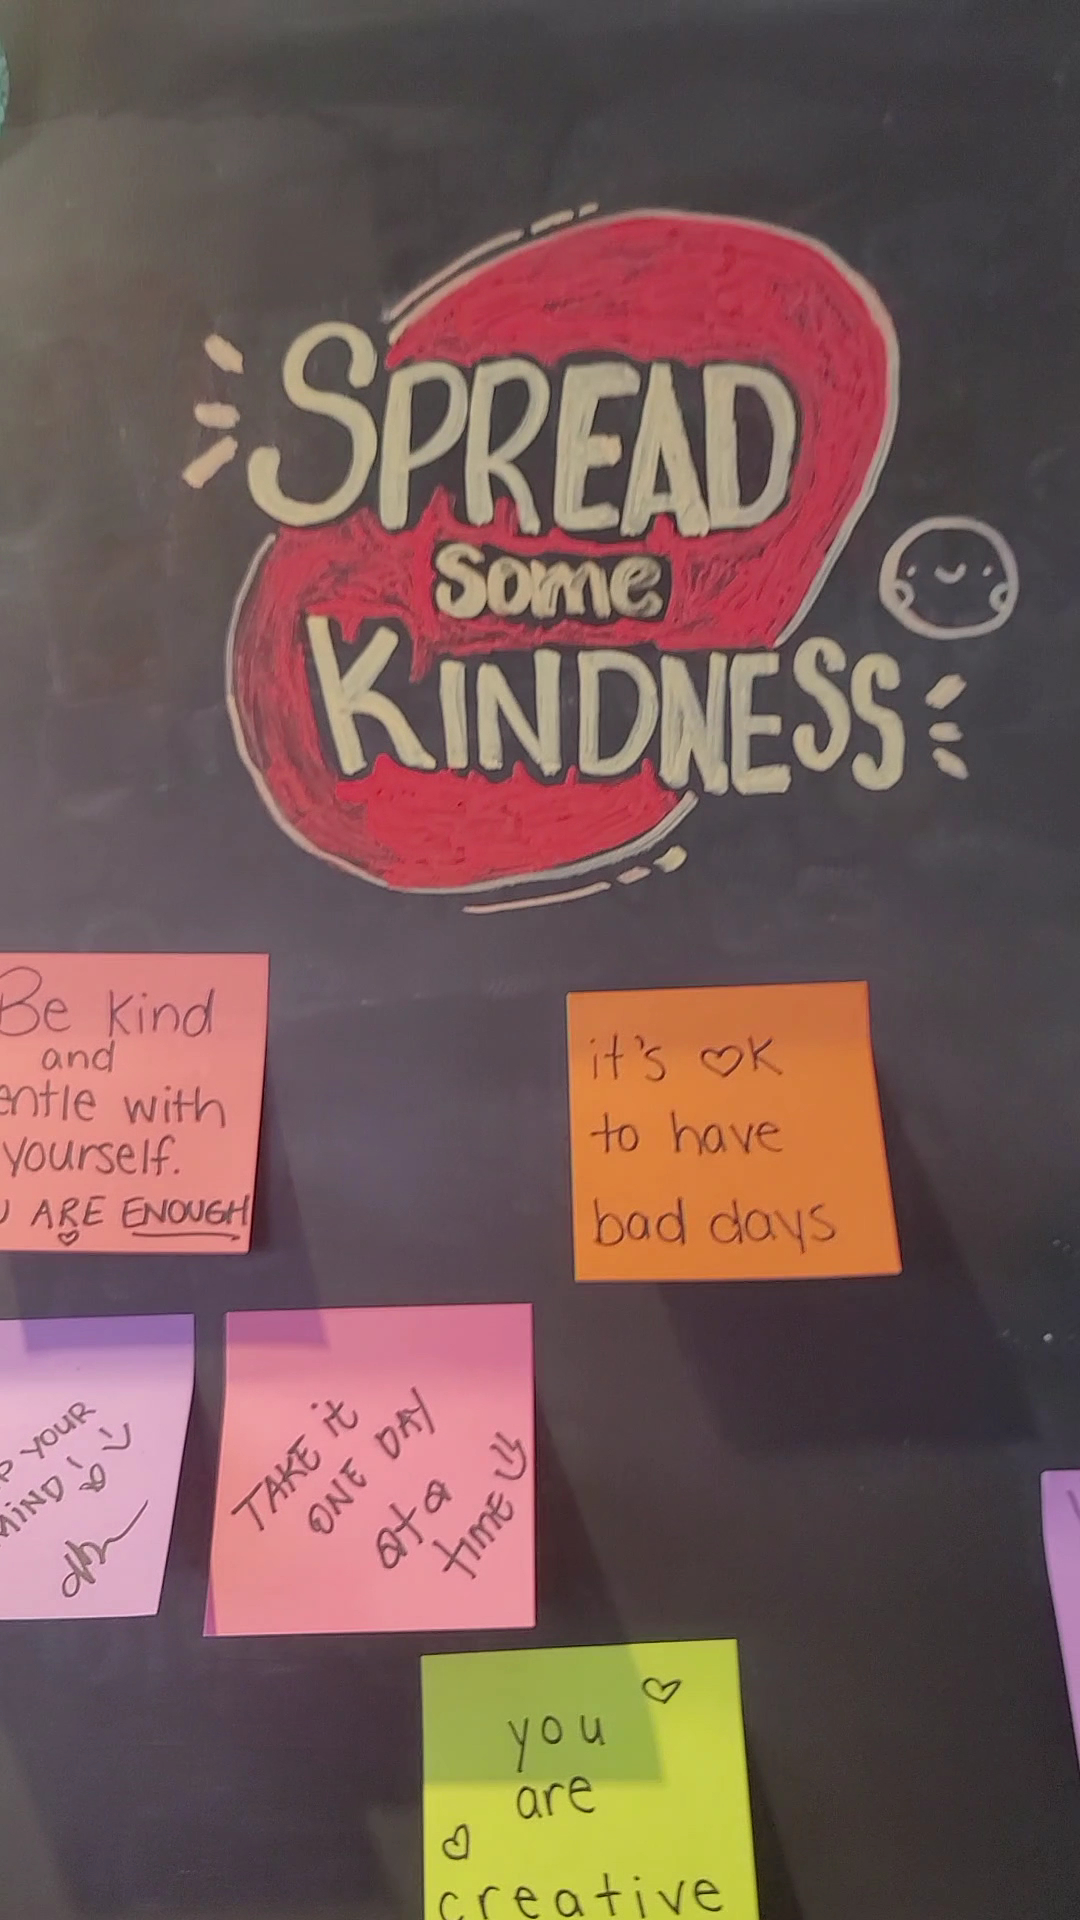 SPREAD
some
KINDNESS
Be kind
and
entle with
yourself.
U ARE ENOUGH
it's OK
to have
bad days
P YOUR
MIND
TAKE it
ONE DAY
at a
time
you
are
creative